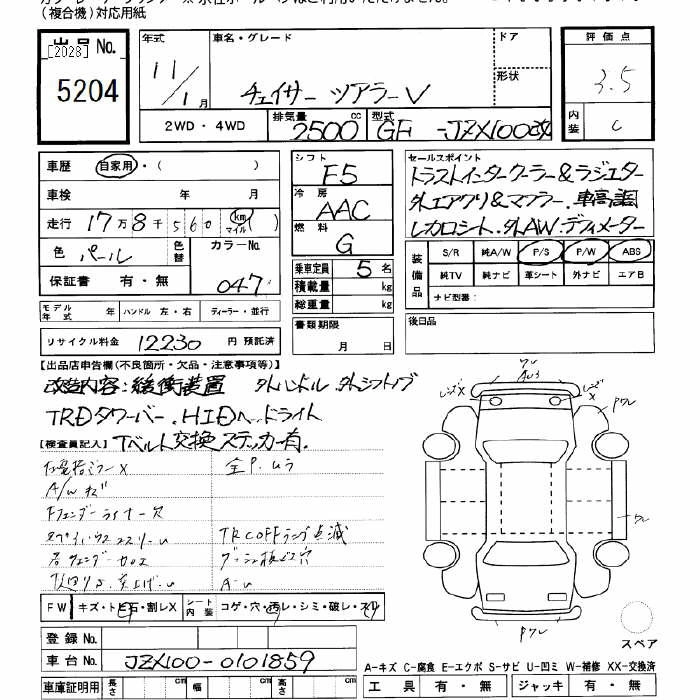 (複合機)対応用紙
出品No.
[2028]
5204
年式
11/1月
車名・グレード
チェイサー ツアラーV
ドア
形状
評価点
3.5
内装
C
2WD・4WD
排気量
2500cc
型式
GF-JZX100改
車歴
自家用・( )
車検 年 月
走行 17万8千560 km マイル ( )
色 パール
色替
カラーNo. 047
保証書 有・無
シフト F5
冷房 AAC
燃料 G
乗車定員 5名
積載量 kg
総重量 kg
セールスポイント
トラストインタークーラー&ラジエター
外エアクリ&マフラー.車高調
レカロシート.外AW.デフィメーター
装備品
S/R 純A/W P/S P/W ABS
純TV 純ナビ 革シート 外ナビ エアB
ナビ型番:
モデル年式 年 ハンドル 左・右 ディーラー・並行
リサイクル料金 12230 円 預託済
書類期限 月 日
後日品
【出品店申告欄(不良箇所・欠品・注意事項等)】
改造内容:緩衝装置 外ハンドル 外シフトノブ
TRDタワーバー.HIDヘッドライト
【検査員記入】Tベルト交換ステッカー有.
全P.ムラ
A/W キズ
Fフェンダーライナー欠
TRC OFFランプ点滅
A-U
Pワレ
Pワレ
ワレ
FW キズ・トビ石・割レX
シート内装 コゲ・穴・汚レ・シミ・破レ・スレ
登録No.
車台No. JZX100-0101859
スペア
A-キズ C-腐食 E-エクボ S-サビ U-凹ミ W-補修 XX-交換済
車庫証明用 長さ cm 幅 cm 高さ cm
工具 有・無 ジャッキ 有・無